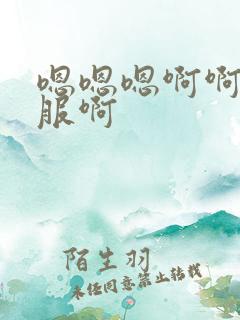 嗯嗯嗯啊啊
服啊
陌生羽
未经同意禁止转载